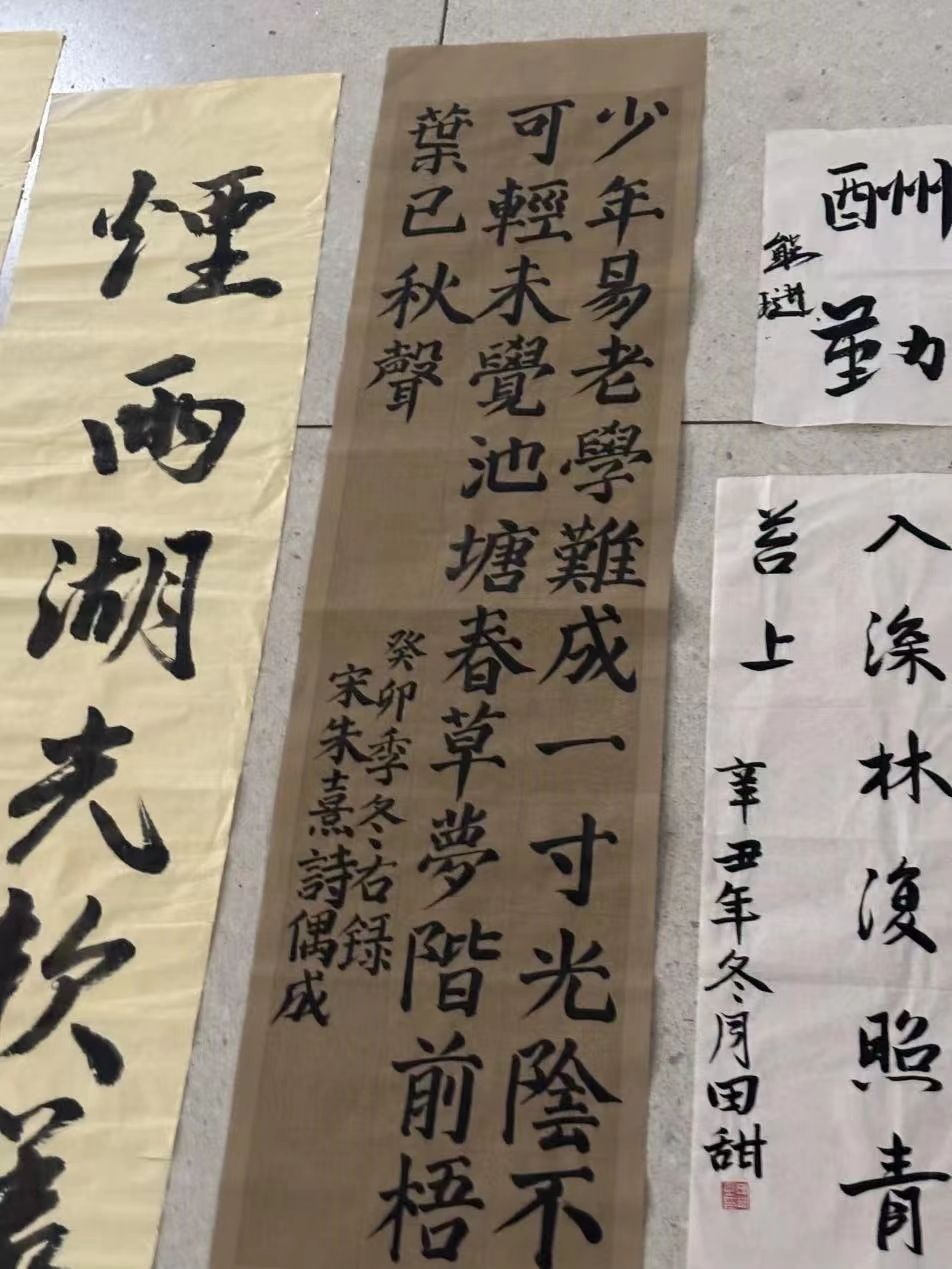 酬
勤
熊
入深林復照青
苔上
辛丑年冬月田甜
少年易老學難成一寸光陰不
可輕未覺池塘春草夢階前梧
葉已秋聲
癸卯季冬右録
宋朱熹詩偶成
煙雨湖光軟